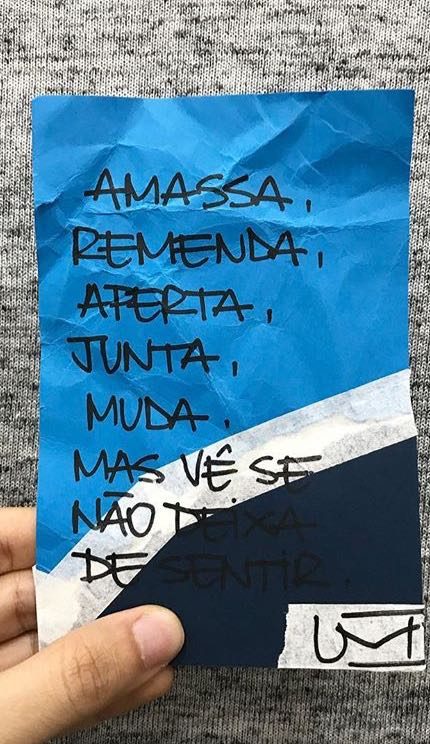 AMASSA,
REMENDA,
APERTA,
JUNTA,
MUDA,
MAS VÊ SE
NÃO DEIXA
DE SENTIR.